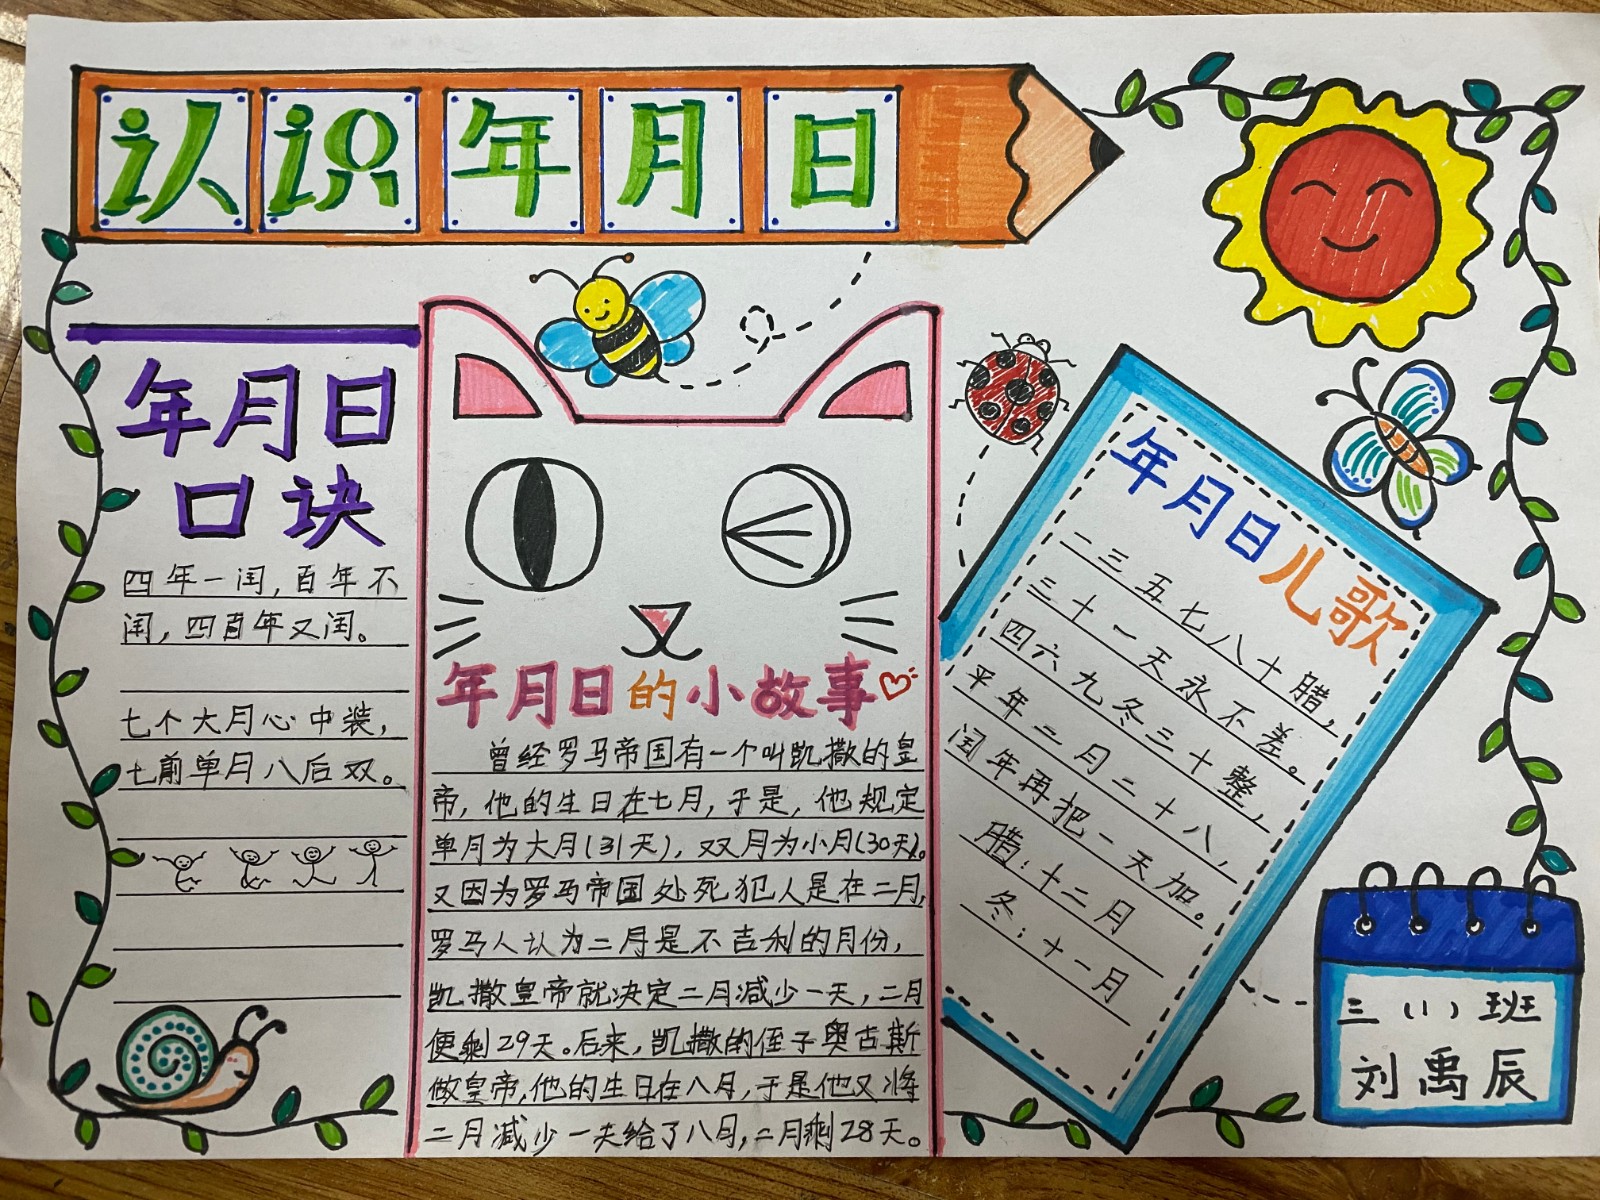 认识年月日
年月日
口诀
四年一闰,百年不
闰,四百年又闰。
七个大月心中装,
七前单月八后双。
年月日的小故事
曾经罗马帝国有一个叫凯撒的皇
帝,他的生日在七月,于是,他规定
单月为大月(31天),双月为小月(30天)。
又因为罗马帝国处死犯人是在二月,
罗马人认为二月是不吉利的月份,
凯撒皇帝就决定二月减少一天,二月
便剩29天。后来,凯撒的侄子奥古斯
做皇帝,他的生日在八月,于是他又将
二月减少一天给了八月,二月剩28天。
年月日儿歌
一三五七八十腊,
三十一天永不差。
四六九冬三十整,
平年二月二十八,
闰年再把一天加。
腊:十二月
冬:十一月
三(1)班
刘禹辰